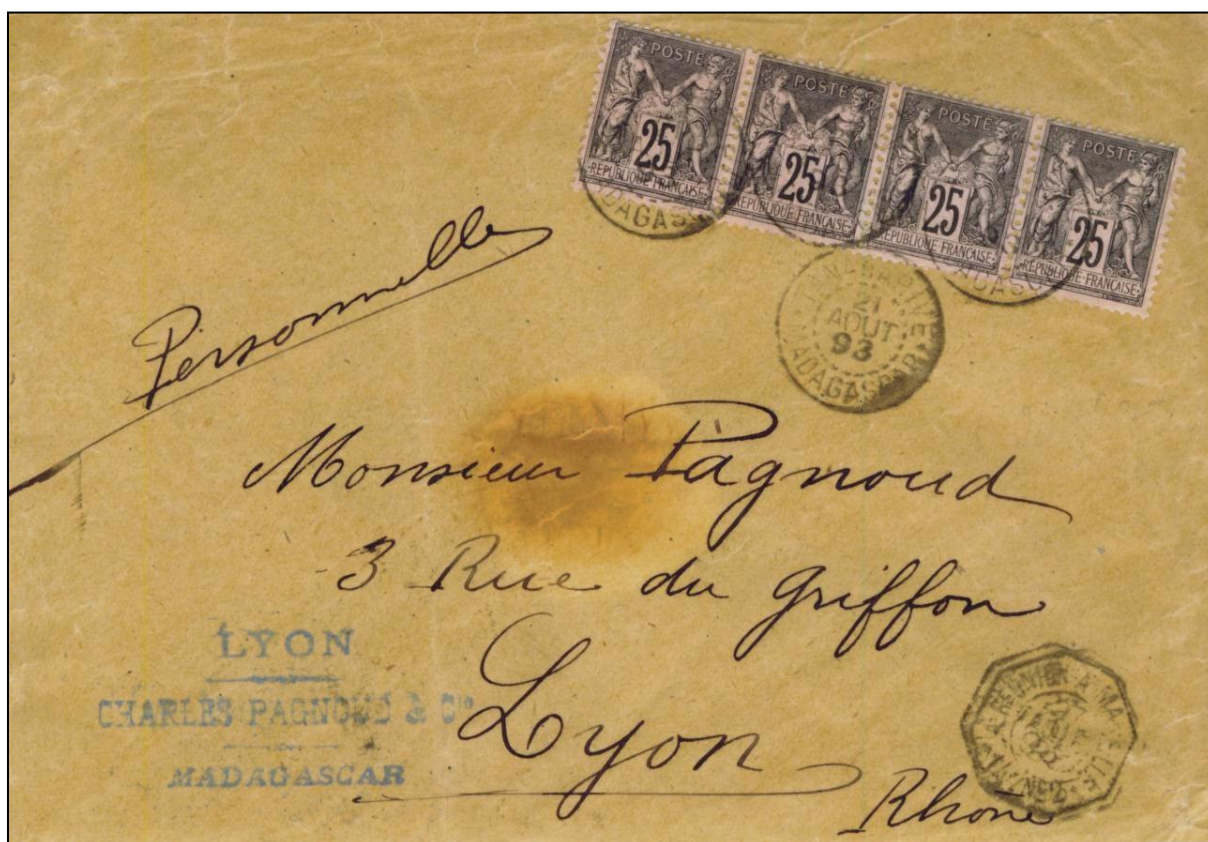 POSTE
25
REPUBLIQUE FRANÇAISE
POSTE
25
REPUBLIQUE FRANÇAISE
POSTE
25
REPUBLIQUE FRANÇAISE
POSTE
25
REPUBLIQUE FRANÇAISE
TANANARIVE
21
AOUT
93
MADAGASCAR
Personnelle
Monsieur Pagnoud
3 Rue du Griffon
Lyon
Rhône
LYON
CHARLES PAGNOUD & Cie
MADAGASCAR
LA REUNION A MARSEILLE